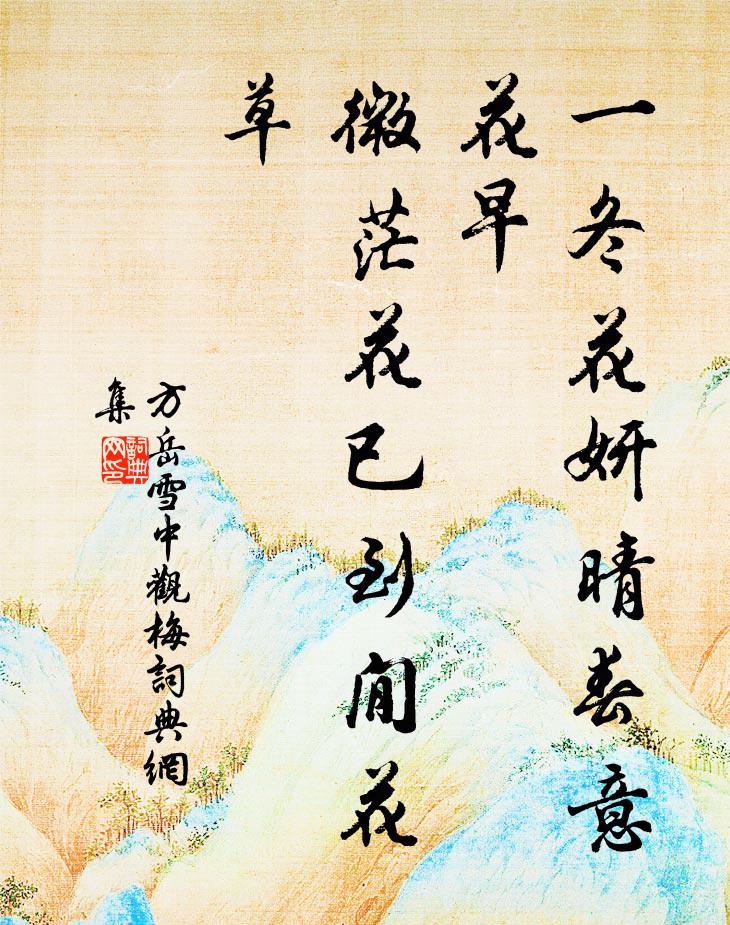 一冬花妍晴春意
花早
微茫花已到閒花
草
方岳雪中觀梅詞典網
集
詞典網印